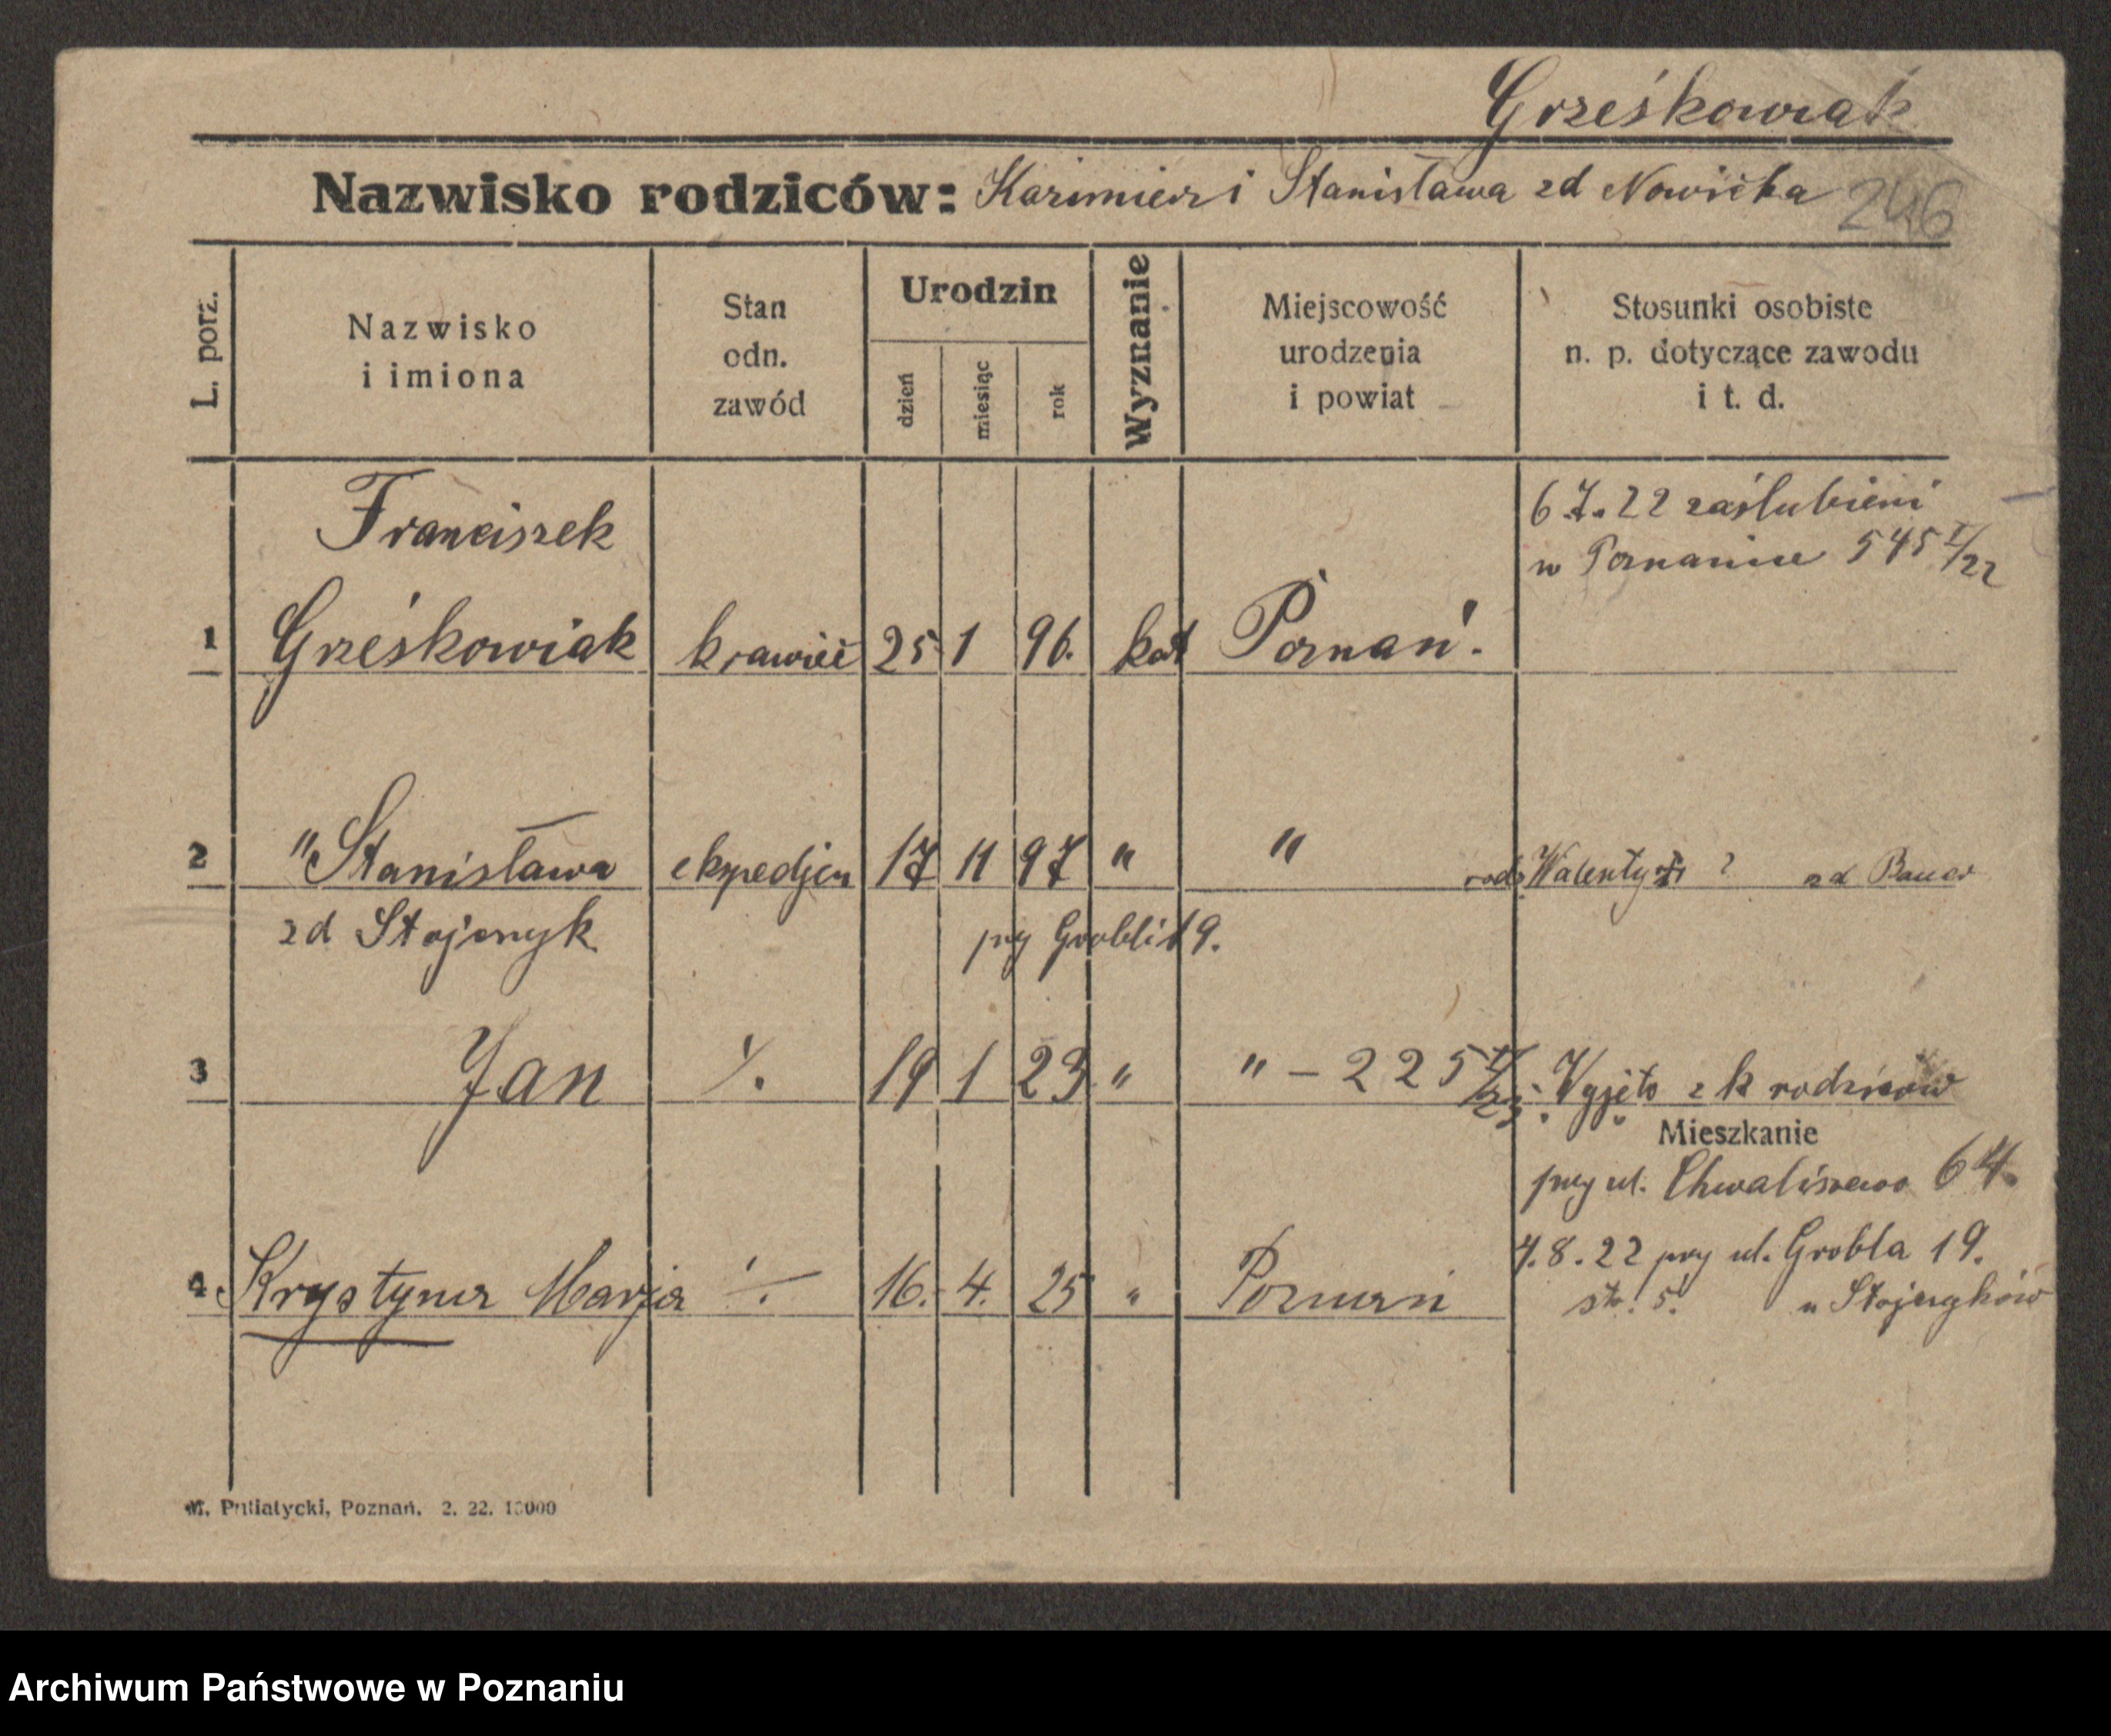 Grześkowiak
Nazwisko rodziców: Kazimierz i Stanisława zd Nowicka 246
L. porz.
Nazwisko
i imiona
Stan
odn.
zawód
Urodzin
dzień
miesiąc
rok
Wyznanie
Miejscowość
urodzenia
i powiat
Stosunki osobiste
n. p. dotyczące zawodu
i t. d.
Franciszek
6.7.22 zaślubieni
w Poznaniu 545 I/22
1 Grześkowiak krawiec 25 1 96. kat Poznań.
2 " Stanisława ekspedjen 17 11 97 " " rodz. Walenty ? zd Bauer
zd Stojczyk przy Grobli 19.
3 Jan ./. 19 1 23 " " – 225 I/23. Wyjęto z k rodziców
Mieszkanie
przy ul. Chwaliszewo 64.
4.8.22 przy ul. Grobla 19.
4 Krystyna Marja ./. 16. 4. 25 " Poznań
str. 5. u Stojczyków
M. Putiatycki, Poznań. 2. 22. 10000
Archiwum Państwowe w Poznaniu